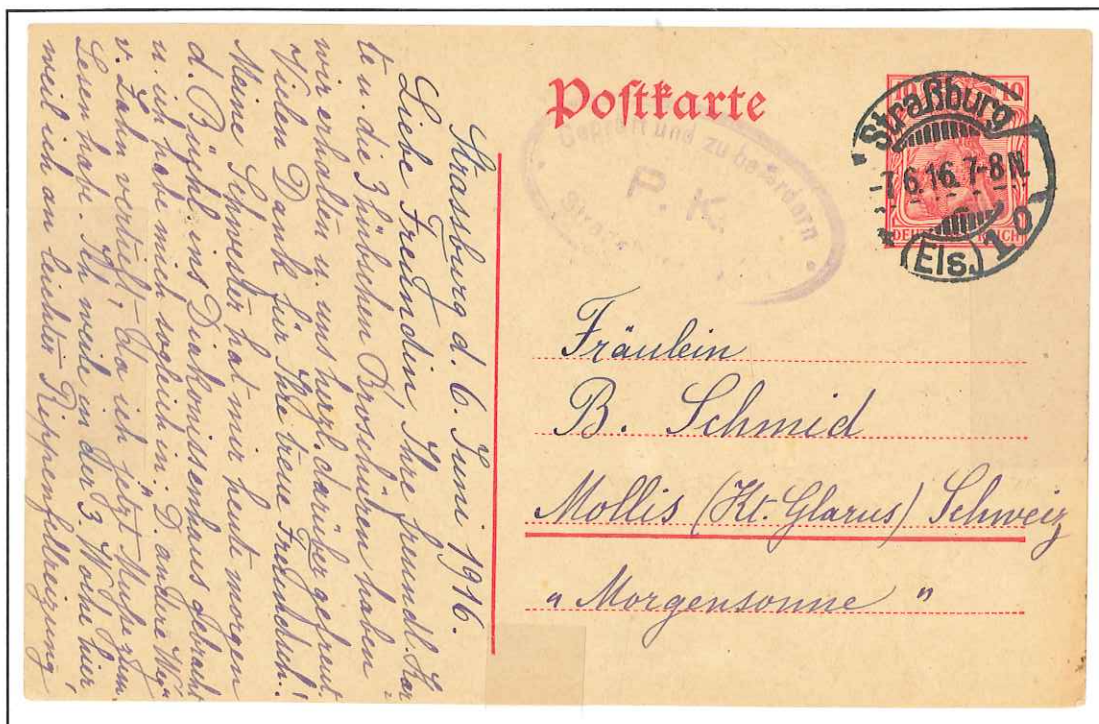 Postkarte
Straßburg
7.6.16.7-8N.
(Els.) 10
10
Geprüft und zu befördern
P. K.
Fräulein
B. Schmid
Mollis (Kt. Glarus) Schweiz
„Morgensonne"
Strassburg d. 6. Juni 1916.
Liebe Freundin, Ihre freundl. Kar-
te u. die 3 hübschen Broschüren haben
wir erhalten u. uns herzl. darüber gefreut.
Vielen Dank für Ihre treue Freundsch.!
Meine Schwester hat mir heute morgen
d. Büchl. ins Diakonissenhaus gebracht
u. ich habe mich sogleich in: D. andere Weg"
v. Zahn vertieft, da ich jetzt Muße zum
Lesen habe. Ich weile in der 3. Woche hier
weil ich an leichter Rippenfellreizung